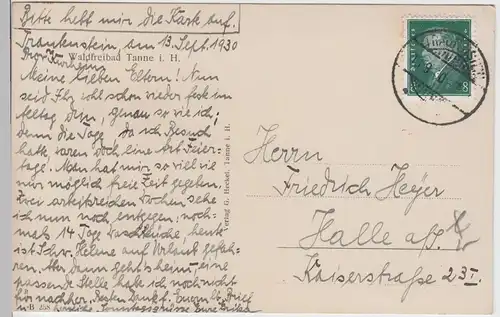 Bitte hebt mir die Karte auf.
Frankenstein, am 13. Sept. 1930
Waldfreibad Tanne i. H.
Meine lieben Eltern! Nun
seid Ihr wohl schon wieder fest im
Alltag drin, genau so wie ich;
denn die Tage, da ich Besuch
hatte, waren doch eine Art Feier-
tage. Man hat mir so viel wie
nur möglich freie Zeit gegeben.
Zwei arbeitsreichen Wochen sehe
ich nun noch entgegen; noch-
mals 14 Tage Waschküche, heute
ist Schw. Helene auf Urlaub gefah-
ren. Aber dann geht's heim! eine
passende Stelle habe ich noch nicht
Besten Dank f. Euern lb. Brief
u. Sonntagsgrüsse Eure Erika
Verlag G. Heckel, Tanne i. H.
DEUTSCHES REICH
8
Herrn
Friedrich Heyer
Halle a/S.
Kaiserstraße 23 I.